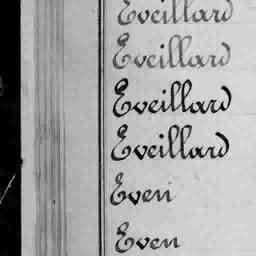 Eveillard
Eveillard
Eveillard
Eveillard
Even
Even